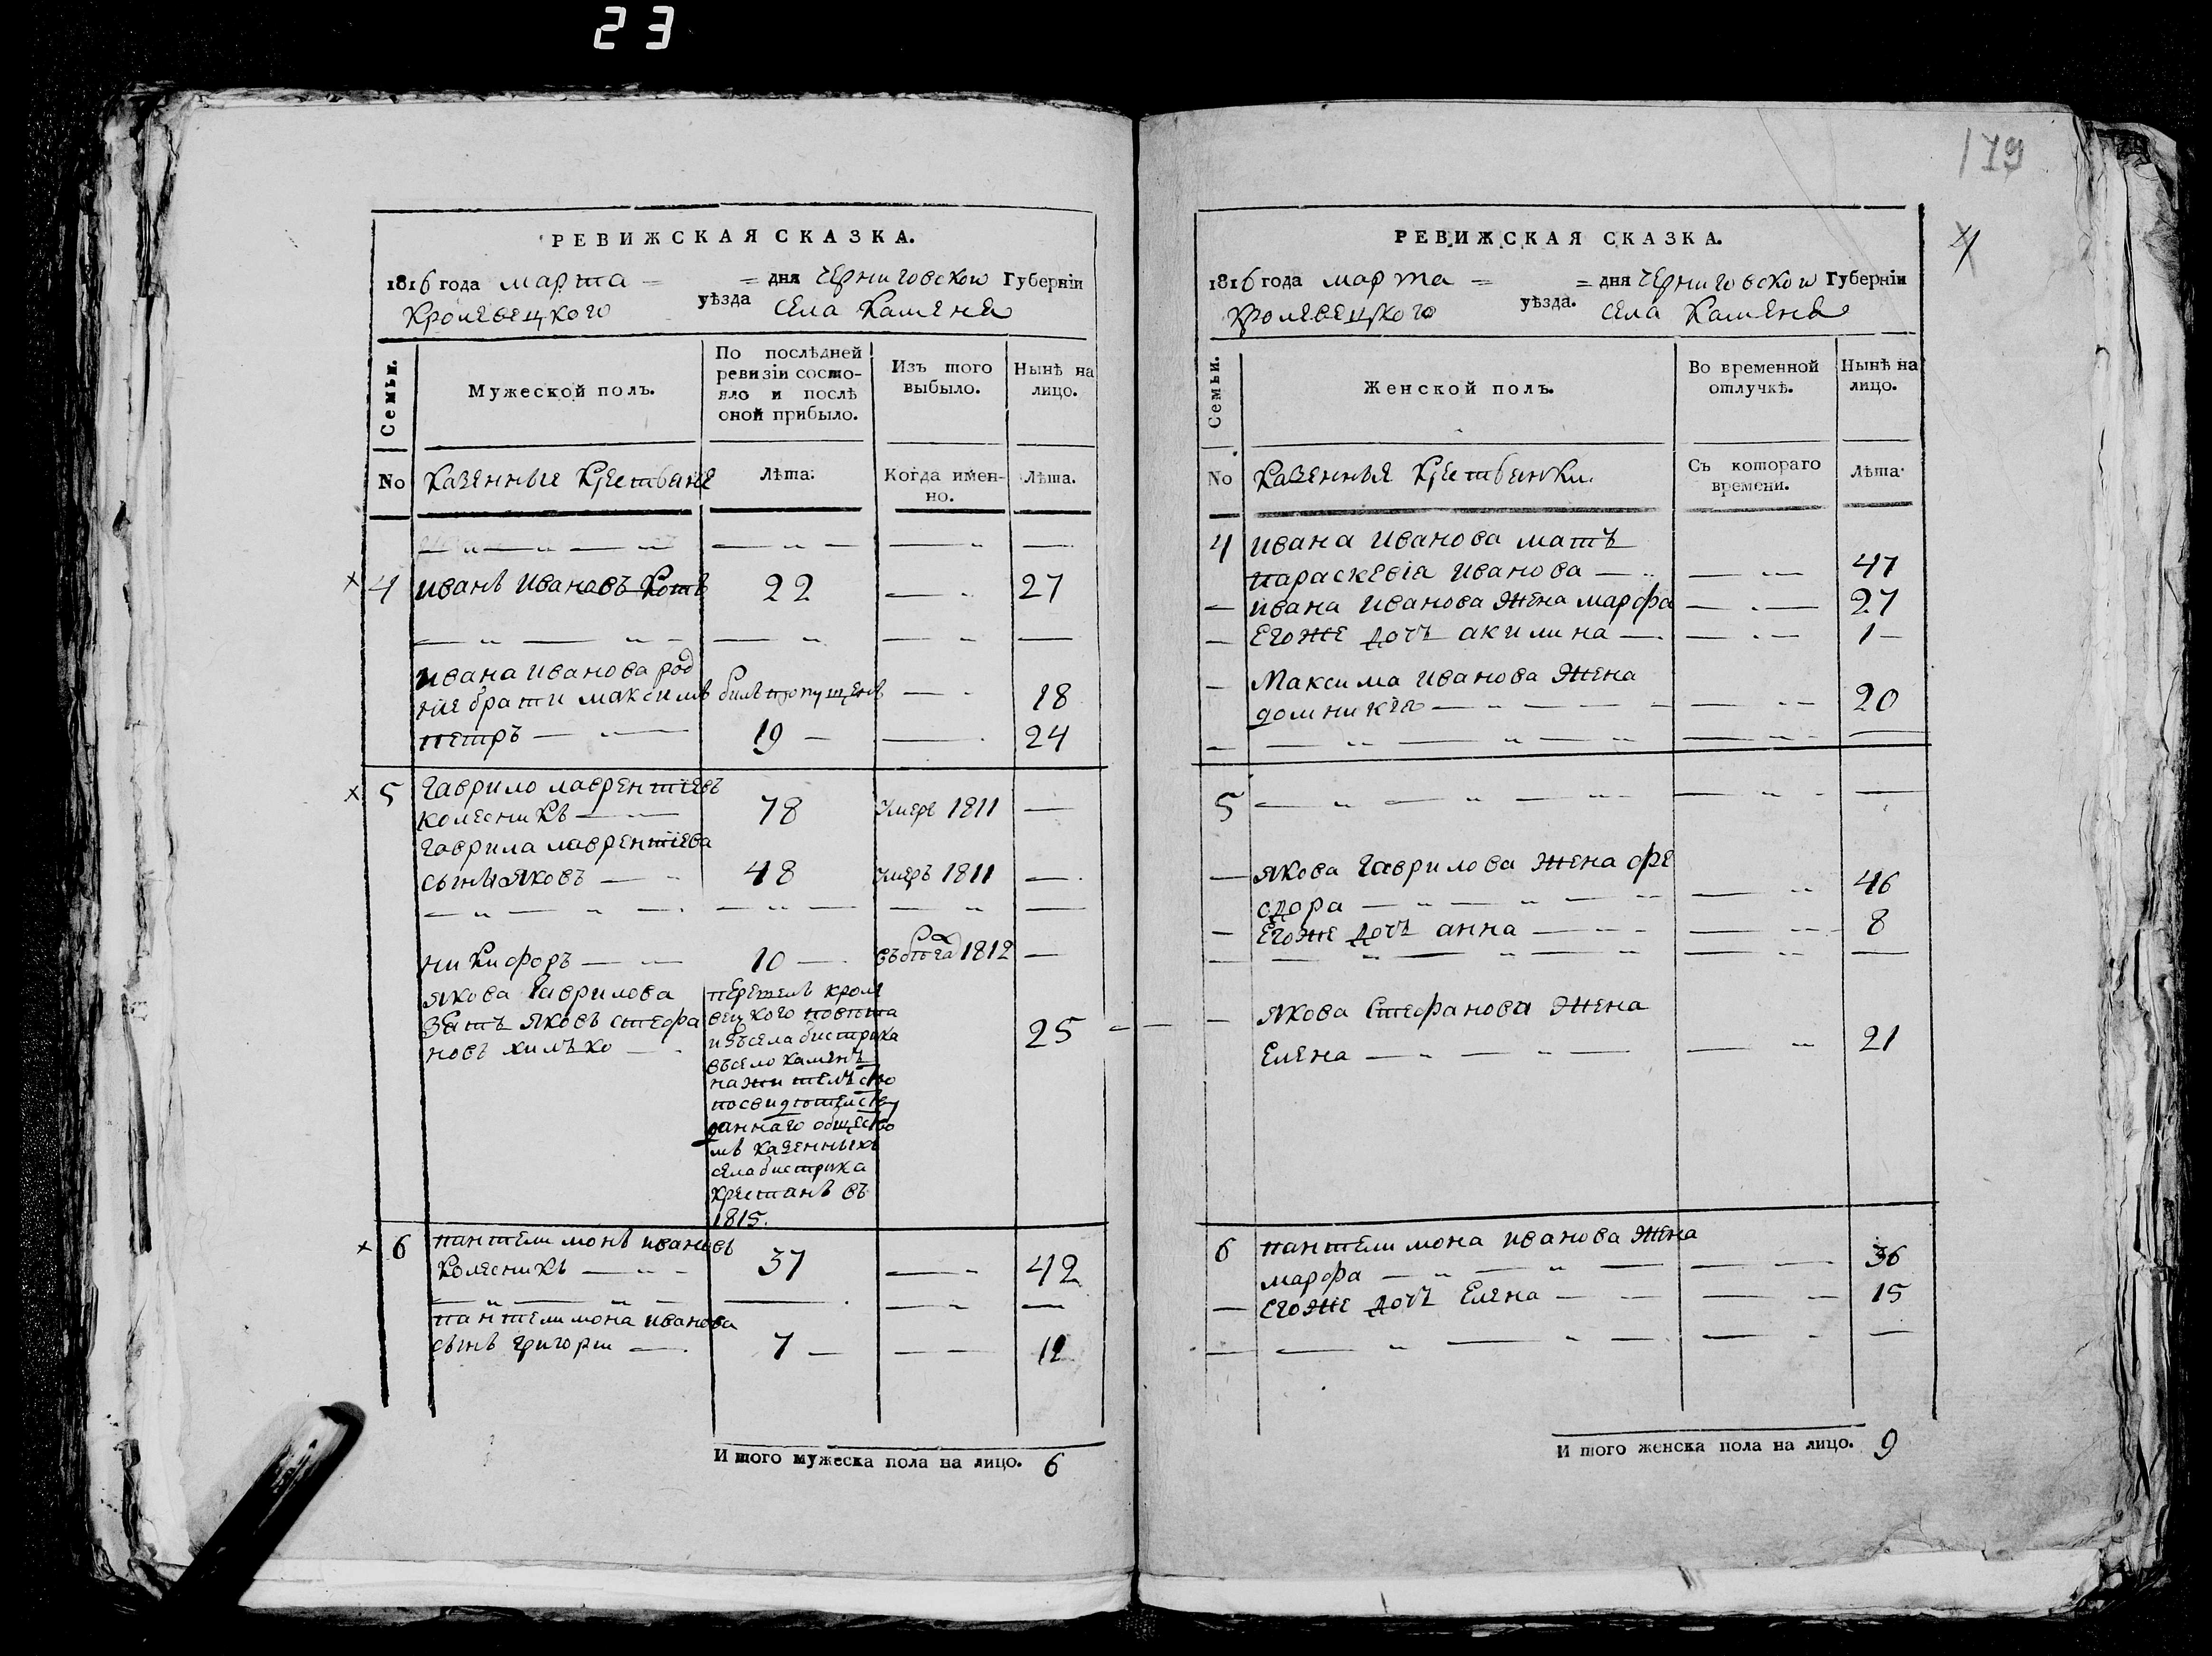 23
179
4
РЕВИЖСКАЯ СКАЗКА.
1816 года марта = = дня черниговской Губерніи
Кролевецкого уѣзда села Каменя
Семьи.
Мужеской полъ.
По послѣдней ревизіи состояло и послѣ оной прибыло.
Изъ того выбыло.
Нынѣ на лицо.
No Казенные Крестьяне Лѣта. Когда именно. Лѣта.
4 иванъ ивановъ 22 27
ивана иванова род
ніе брати максимъ билъ пропущенъ 18
петръ 19 24
5 гаврило лаврентіевъ
колесникъ 78 умеръ 1811
гаврила лаврентіева
сынъ яковъ 48 умеръ 1811
никифоръ 10 1812
якова гаврилова
зять яковъ стефа
новъ хилько 25
перешелъ кроле
вецкого повѣта
изъ села бистрика
въ село камень
на жителство
по свидѣтелству
данного общество
мъ казенныхъ
села бистрика
крестянъ въ
1815.
6 пантелимонъ ивановъ
Колесникъ 37 42
пантелимона иванова
сынъ григори 7 12
И того мужеска пола на лицо. 6
РЕВИЖСКАЯ СКАЗКА.
1816 года марта = = дня черниговской Губерніи
Кролевецкого уѣзда. села Каменя
Семьи.
Женской полъ.
Во временной отлучкѣ.
Нынѣ на лицо.
No Казенные Крестьянки. Съ котораго времени. Лѣта
4 ивана иванова мать
параскевіа иванова 47
ивана иванова жена марфа 27
егоже дочь акилина 1
Максима иванова жена
домникіа 20
5
якова гаврилова жена фе
сдора 46
егоже дочь анна 8
якова стефанова жена
елена 21
6 пантелимона иванова жена
марфа 36
егоже дочь елена 15
И того женска пола на лицо. 9